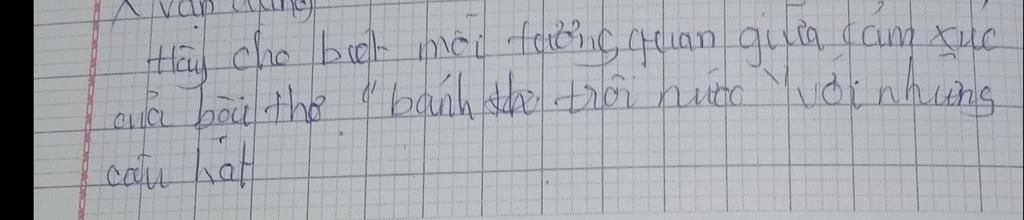 vận dụng
Hãy cho biết mối tương quan giữa cảm xúc
của bài thơ "bánh trôi nước" với những
câu hát